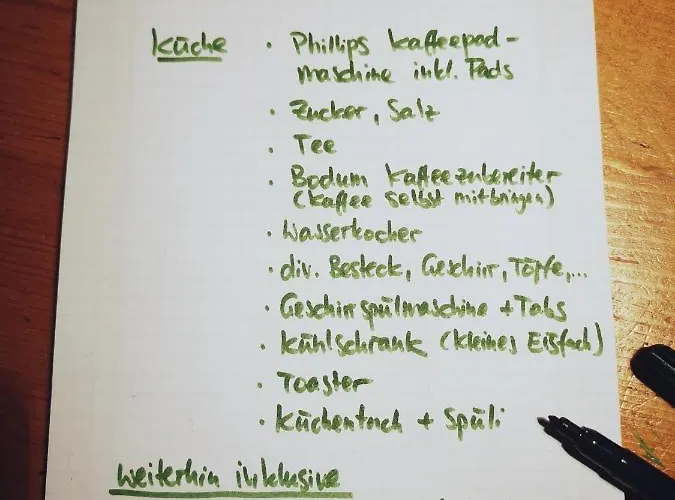 Küche • Phillips Kaffeepad-
maschine inkl. Pads
• Zucker, Salz
• Tee
• Bodum Kaffeezubereiter
(Kaffee selbst mitbringen)
• Wasserkocher
• div. Besteck, Geschirr, Töpfe,...
• Geschirrspülmaschine + Tabs
• Kühlschrank (kleines Eisfach)
• Toaster
• Küchentuch + Spüli
weiterhin inklusive